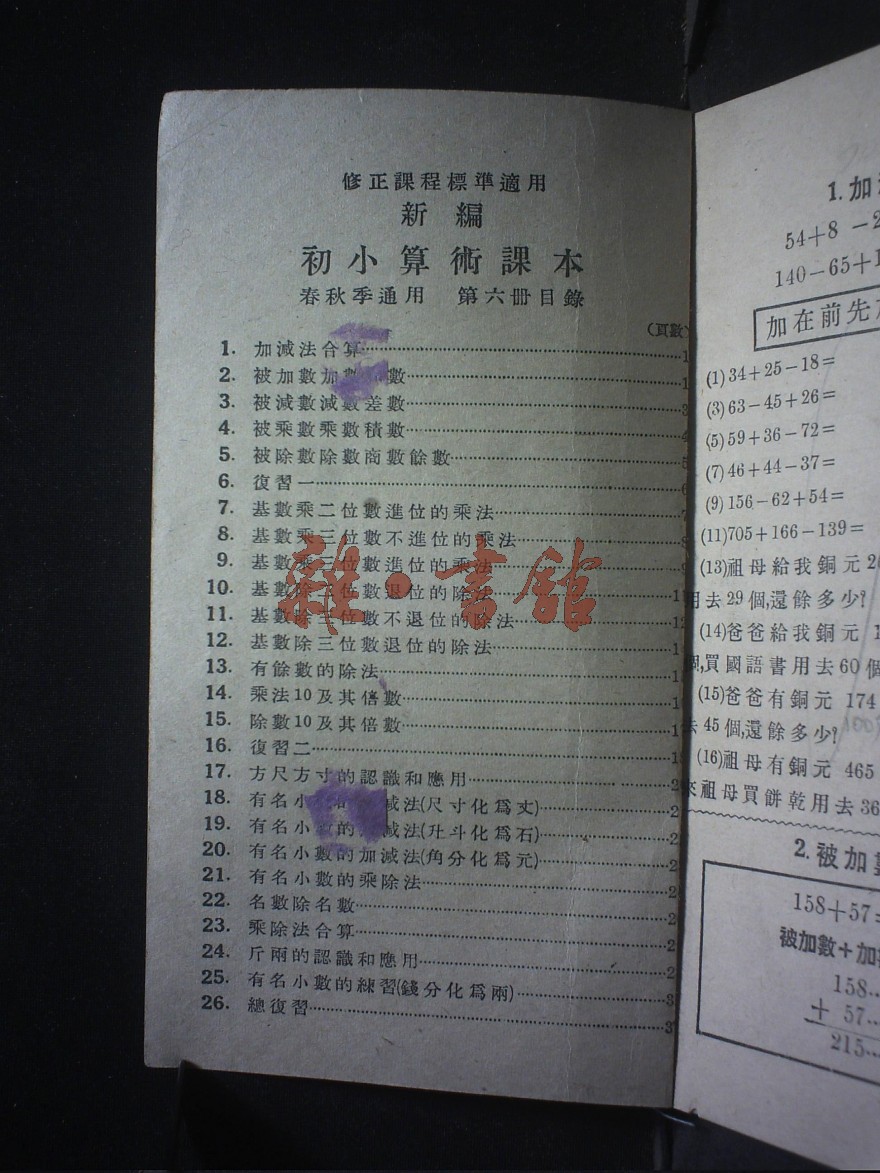 修正課程標準適用
新編
初小算術課本
春秋季通用 第六冊目錄
(頁數)
1. 加減法合算 1
2. 被加數加數和數 1
3. 被減數減數差數 3
4. 被乘數乘數積數 4
5. 被除數除數商數餘數 5
6. 復習一 6
7. 基數乘二位數進位的乘法 7
8. 基數乘三位數不進位的乘法 8
9. 基數乘三位數進位的乘法 9
10. 基數除二位數退位的除法 1
11. 基數除三位數不退位的除法 12
12. 基數除三位數退位的除法 1
13. 有餘數的除法 1
14. 乘法10及其倍數 1
15. 除數10及其倍數 1
16. 復習二 1
17. 方尺方寸的認識和應用 2
18. 有名小 減法(尺寸化爲丈) 2
19. 有名小數的 減法(升斗化爲石) 2
20. 有名小數的加減法(角分化爲元) 2
21. 有名小數的乘除法 2
22. 名數除名數 2
23. 乘除法合算 2
24. 斤兩的認識和應用 2
25. 有名小數的練習(錢分化爲兩) 3
26. 總復習 3
雜·書館
1. 加
54+8-2
140-65+1
加在前先
(1)34+25-18=
(3)63-45+26=
(5)59+36-72=
(7)46+44-37=
(9)156-62+54=
(11)705+166-139=
(13)祖母給我銅元2
用去29個,還餘多少?
(14)爸爸給我銅元1
個,買國語書用去60個
(15)爸爸有銅元174
去45個,還餘多少?
(16)祖母有銅元465
來祖母買餅乾用去36
2. 被加數
158+57=
被加數+加
158…
+ 57…
215…